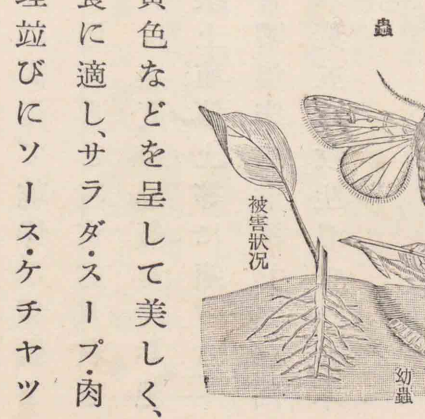 蟲
被害狀況
幼蟲
色などを呈して美しく、
に適し、サラダ・スープ・肉
並びにソース・ケチヤツ